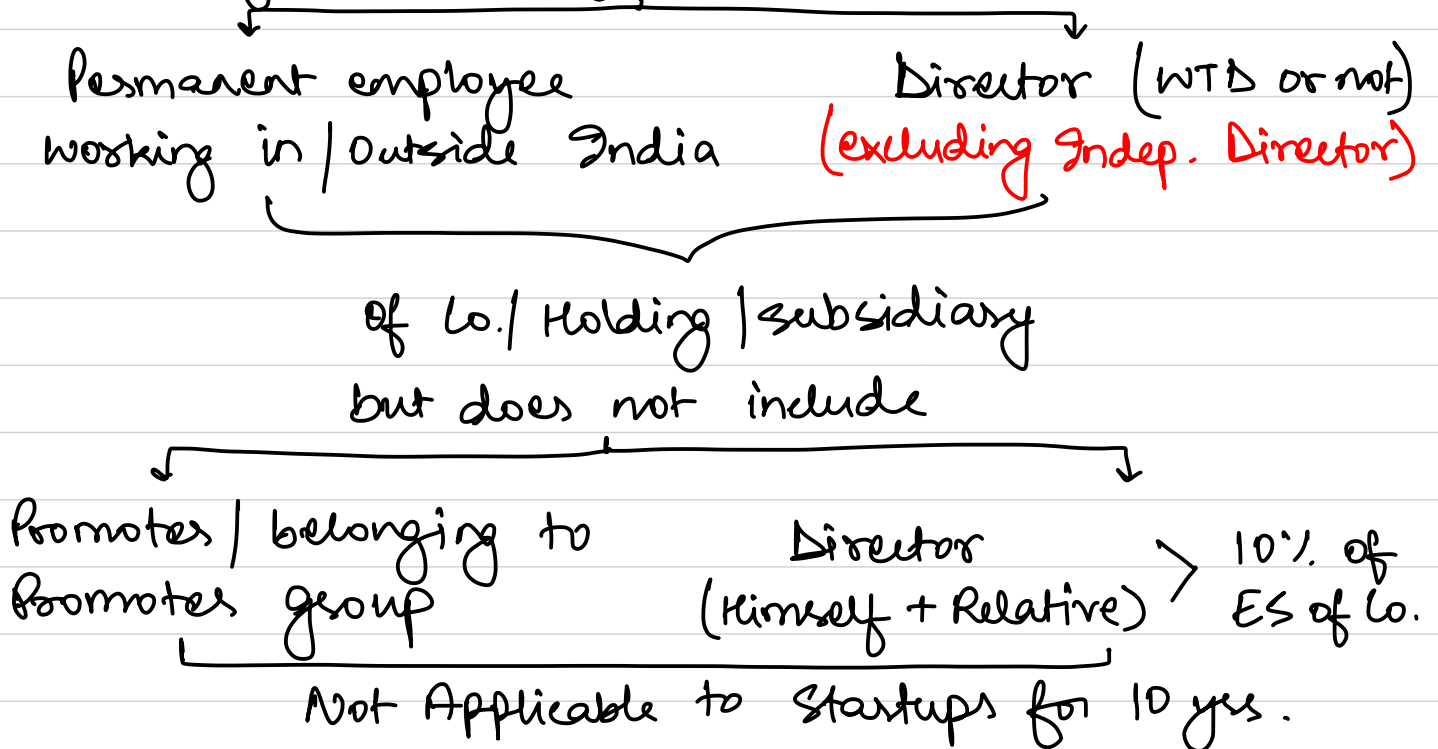 Permanent employee
working in / Outside India
Director (WTD or not)
(excluding Indep. Director)
Of Co. / Holding / subsidiary
but does not include
Promoter / belonging to
Promoter group
Director
(Himself + Relative) > 10% of
ES of Co.
Not Applicable to Startups for 10 yrs.